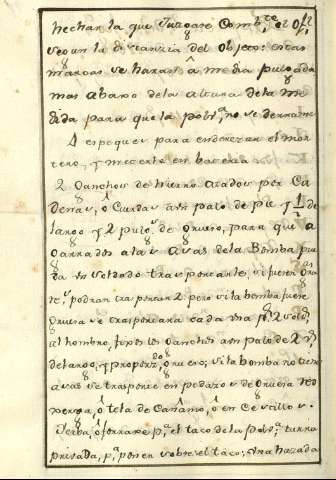 hechar la que Juzgare Comb.te el Of.l
segun la distanzia del Objeto: estas
marcas se haran á media pulgada
mas abaxo de la altura de la me
dida para que la polb.a no se derrame
4 espeques para enderezar el mor
tero, y meterle en bateria
2 Ganchos de hierro atados por Ca
denas, ó Cuerdas a un palo de pie y 1/2 de
largo y 2 pulg.s de grueso, para que a
garrados a las Asas de la Bomba pue
da un soldado transportarla, si fueren
podran transportar 2 pero si la bomba fuere
Gruesa se trasportara cada una p.r 2 sold.s
al hombro, fixos los Ganchos a un palo de 2
de largo, y proporz.do grueso; si la bomba no tiene
asas se trasporte en pedazos de Cuerda
ó tela de Cañamo, ó en Cestillos.
Yerba, ó forrage p.a el taco de la Polb.a tierra
prisada, p.a poner sobre el taco; una hazada